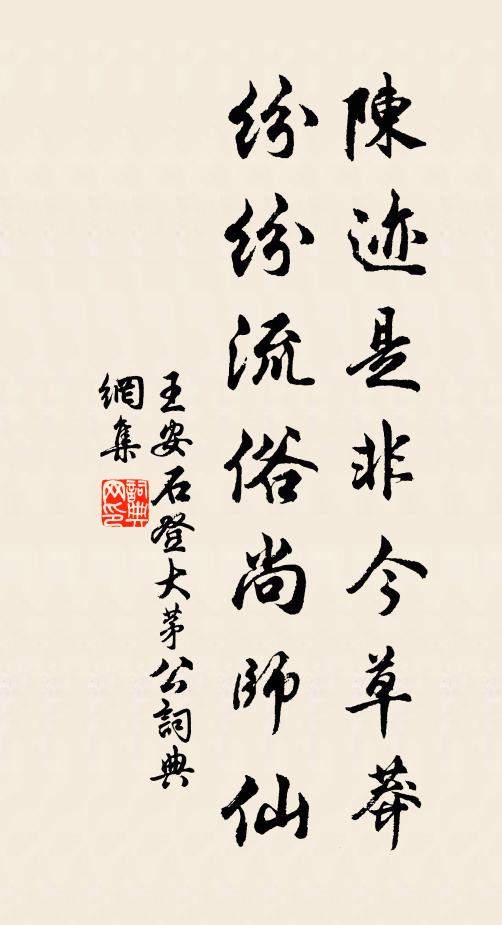 陳迹是非今草莽
紛紛流俗尚師仙
王安石登大茅公詞典
網集
詞典
网印